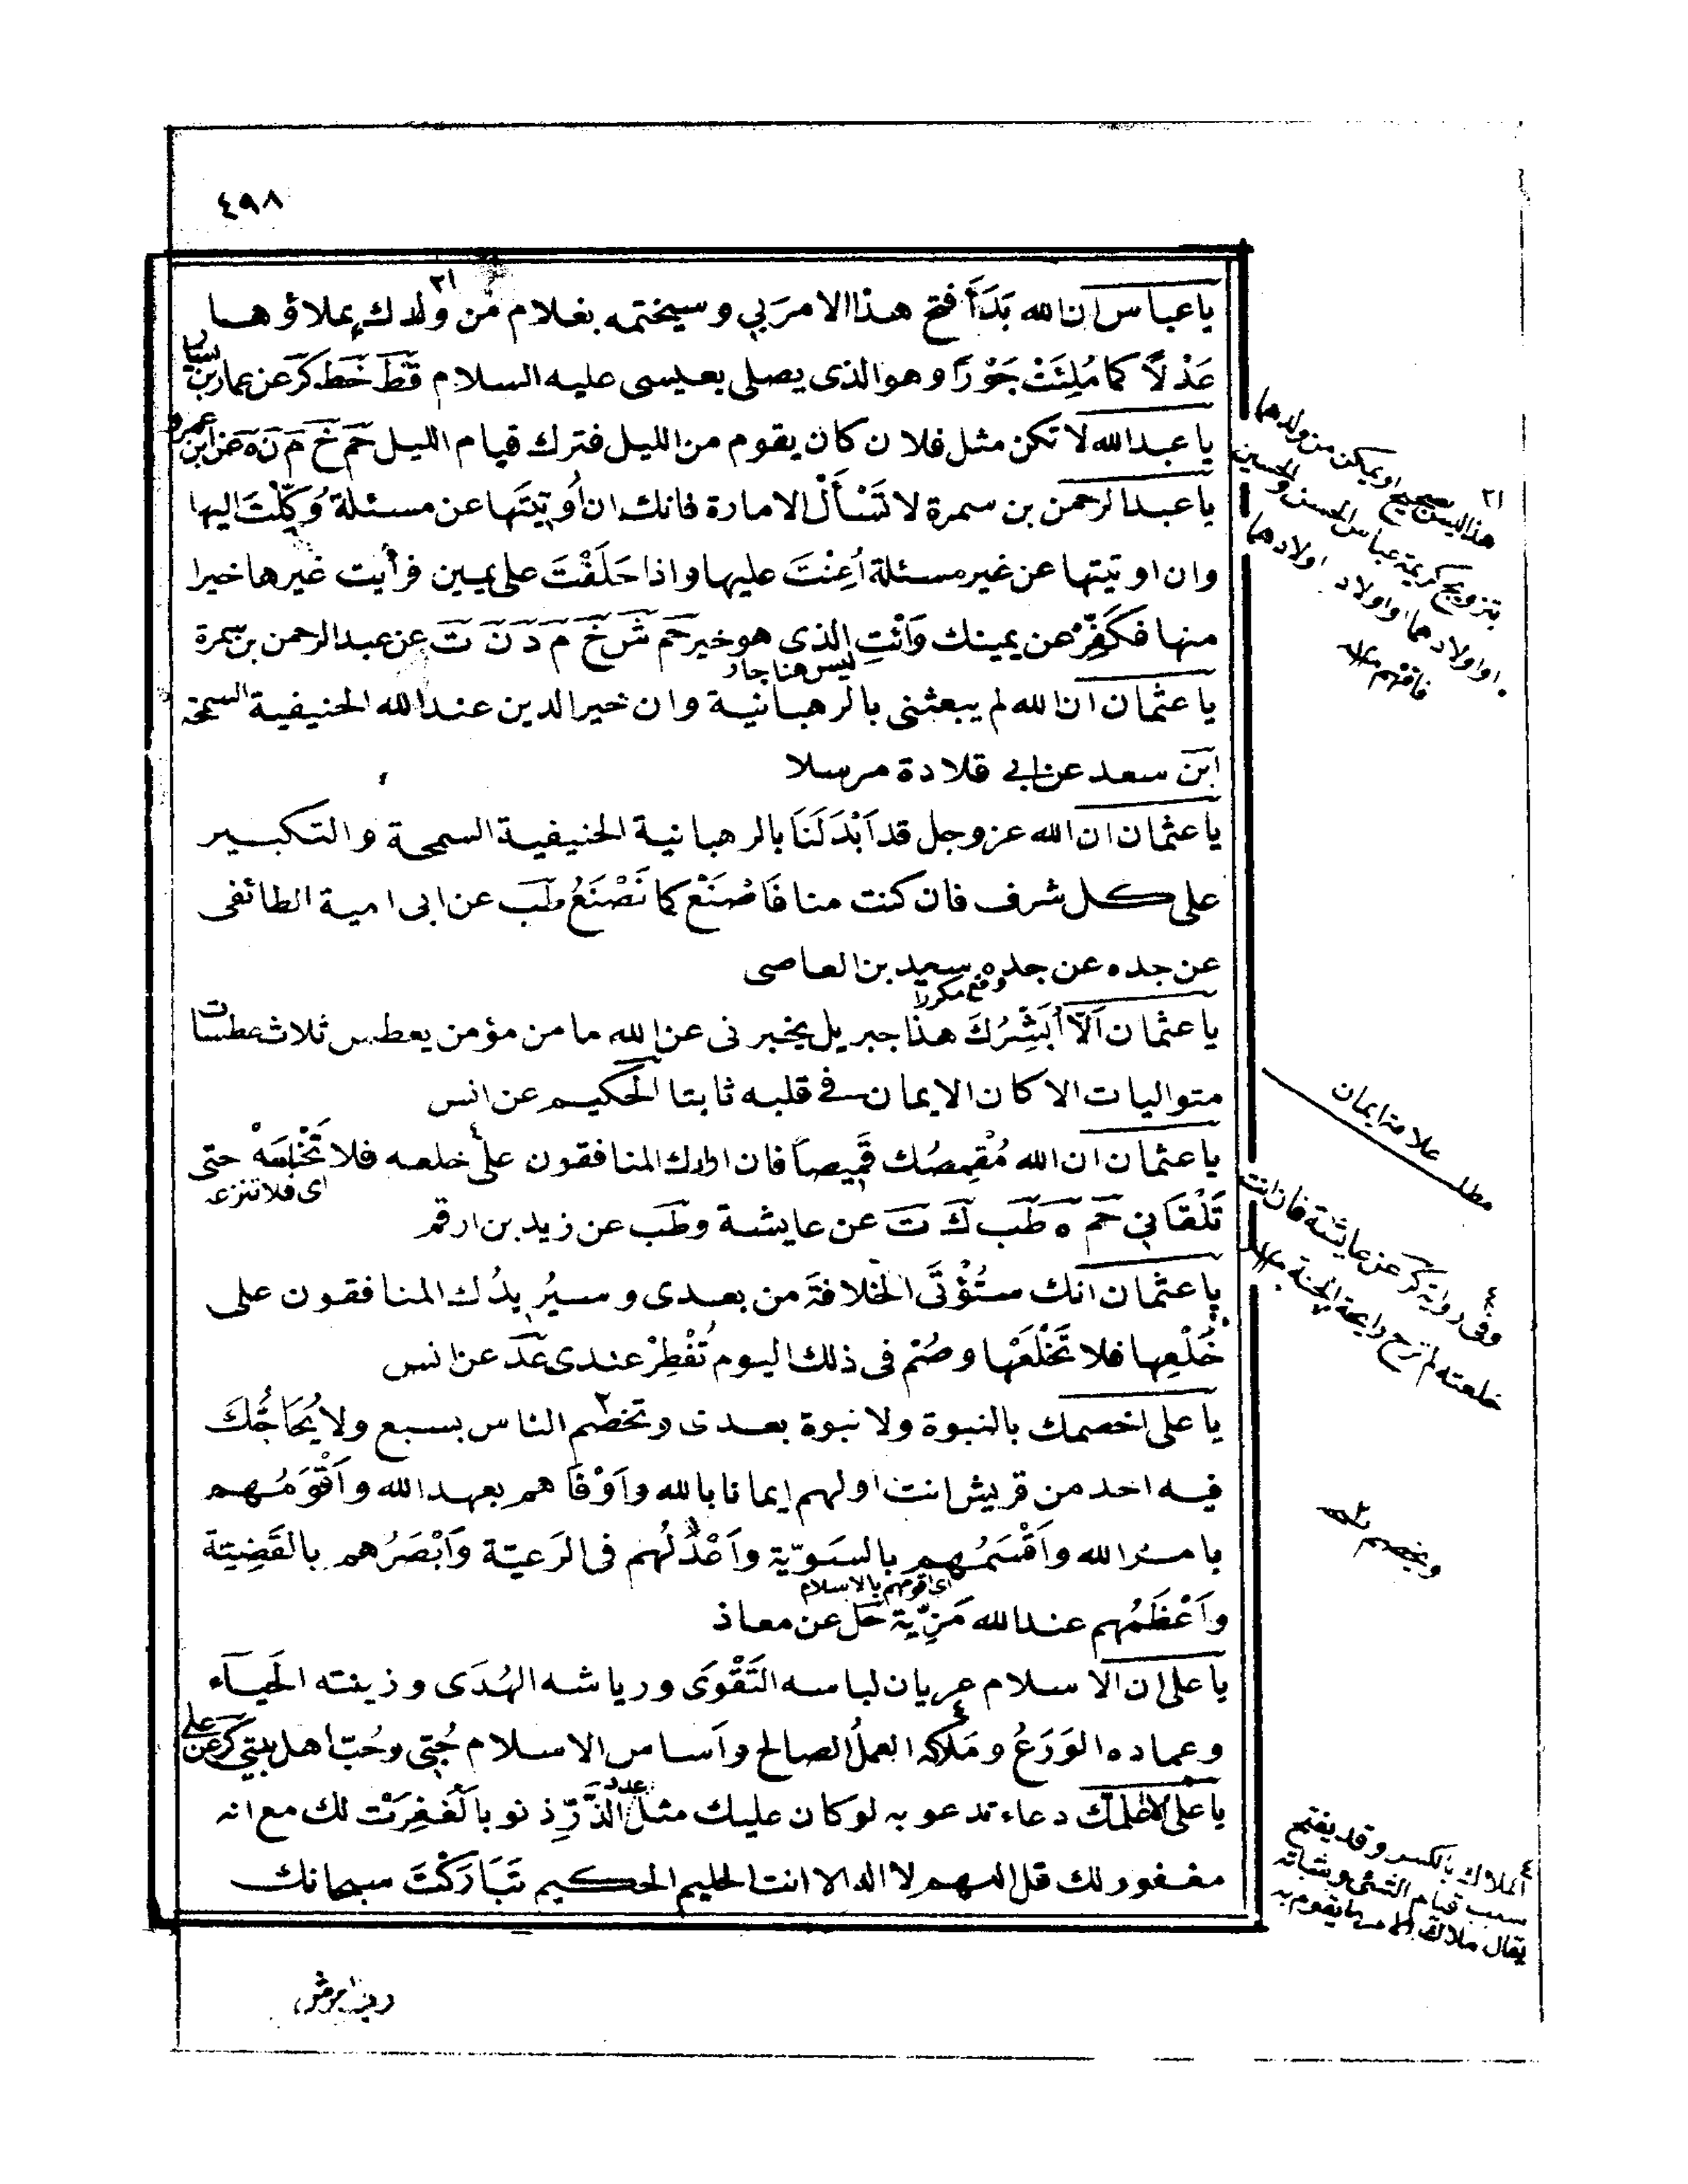 ٤٩٨
يا عباس ان الله بَدَأَ فتح هذا الامر بي وسيختمه بغلام من ولدك يملاؤها
عَدْلاً كما مُلِئَتْ جَوْرًا وهو الذى يصلى بعيسى عليه السلام قط خط كر عن عمار بن ياسر
يا عبد الله لا تكن مثل فلان كان يقوم من الليل فترك قيام الليل حم خ م ن ه عن ابن عمرو
يا عبد الرحمن بن سمرة لا تَسْأَلْ الامارة فانك ان أُوتِيتَها عن مسئلة وُكِّلْتَ اليها
وان اوتيتها عن غير مسئلة أُعِنْتَ عليها واذا حَلَفْتَ على يمين فرأيت غيرها خيرا
منها فكَفِّرْ عن يمينك وَأْتِ الذى هو خير حم ش خ م د ن ت عن عبد الرحمن بن سمرة
يا عثمان ان الله لم يبعثنى بالرهبانية وان خير الدين عند الله الحنيفية السمحة
ابن سعد عن ابي قلادة مرسلا
يا عثمان ان الله عز وجل قد اَبْدَلَنَا بالرهبانية الحنيفية السمحة والتكبير
على كل شرف فان كنت منا فَاصْنَعْ كما نَصْنَعُ طب عن ابى امية الطائفى
عن جده عن جده سعيد بن العاصى
وقع مكررا
يا عثمان اَلاَ اُبَشِّرُكَ هذا جبريل يخبرنى عن الله ما من مؤمن يعطس ثلاث عطسات
متواليات الا كان الايمان فى قلبه ثابتا الحكيم عن انس
يا عثمان ان الله مُقَمِّصُك قَمِيصاً فان ارادك المنافقون على خلعه فلا تَخْلَعْهُ حتى
اى فلا تنزعه
تَلْقَانِي حم ه طب ك ت عن عايشة وطب عن زيد بن ارقم
يا عثمان انك ستُؤْتَى الخلافةَ من بعدى وسيُرِيدُك المنافقون على
خَلْعِها فلا تَخْلَعْها وصُمْ فى ذلك اليوم تُفْطِرْ عندى عد عن انس
يا على اخصمك بالنبوة ولا نبوة بعدى وتخصم الناس بسبع ولا يُحَاجُّكَ
فيه احد من قريش انت اولهم ايمانا بالله واَوْفَاهم بعهد الله واَقْوَمُهم
بامر الله واَقْسَمُهم بالسَوِيّة واَعْدَلُهم فى الرَعيّة واَبْصَرُهم بالقَضِيّة
واَعْظَمُهم عند الله مَزِيّة حل عن معاذ
يا على ان الاسلام عريان لباسه التَقْوَى ورياشه الهُدَى وزينته الحَياَء
وعماده الوَرَعُ ومَلاكه العملُ الصالح واَساس الاسلام حُبّى وحُبّ اهل بيتي كر عن على
يا على الا اعلمك دعاء تدعو به لو كان عليك مثل عدد الذَرِّ ذنوبا لَغُفِرَتْ لك مع انه
مغفور لك قل اللهم لا اله الا انت الحليم الحكيم تَبَارَكْتَ سبحانك
هذا ليس بصحيح او يمكن من ولدها
بتزويج كريمة عباس الحسن والحسين
او اولادهما او اولاد اولادهما
فافهم
مطلب علامة ايمان
وفى رواية كر عن عايشة فان انت
خلعته لم ترح رايحة الجنة
الملاك بالكسر وقد يفتح
سبب قيام الشئ وثباته
يقال ملاك الامر ما يقوم به
رب العرش